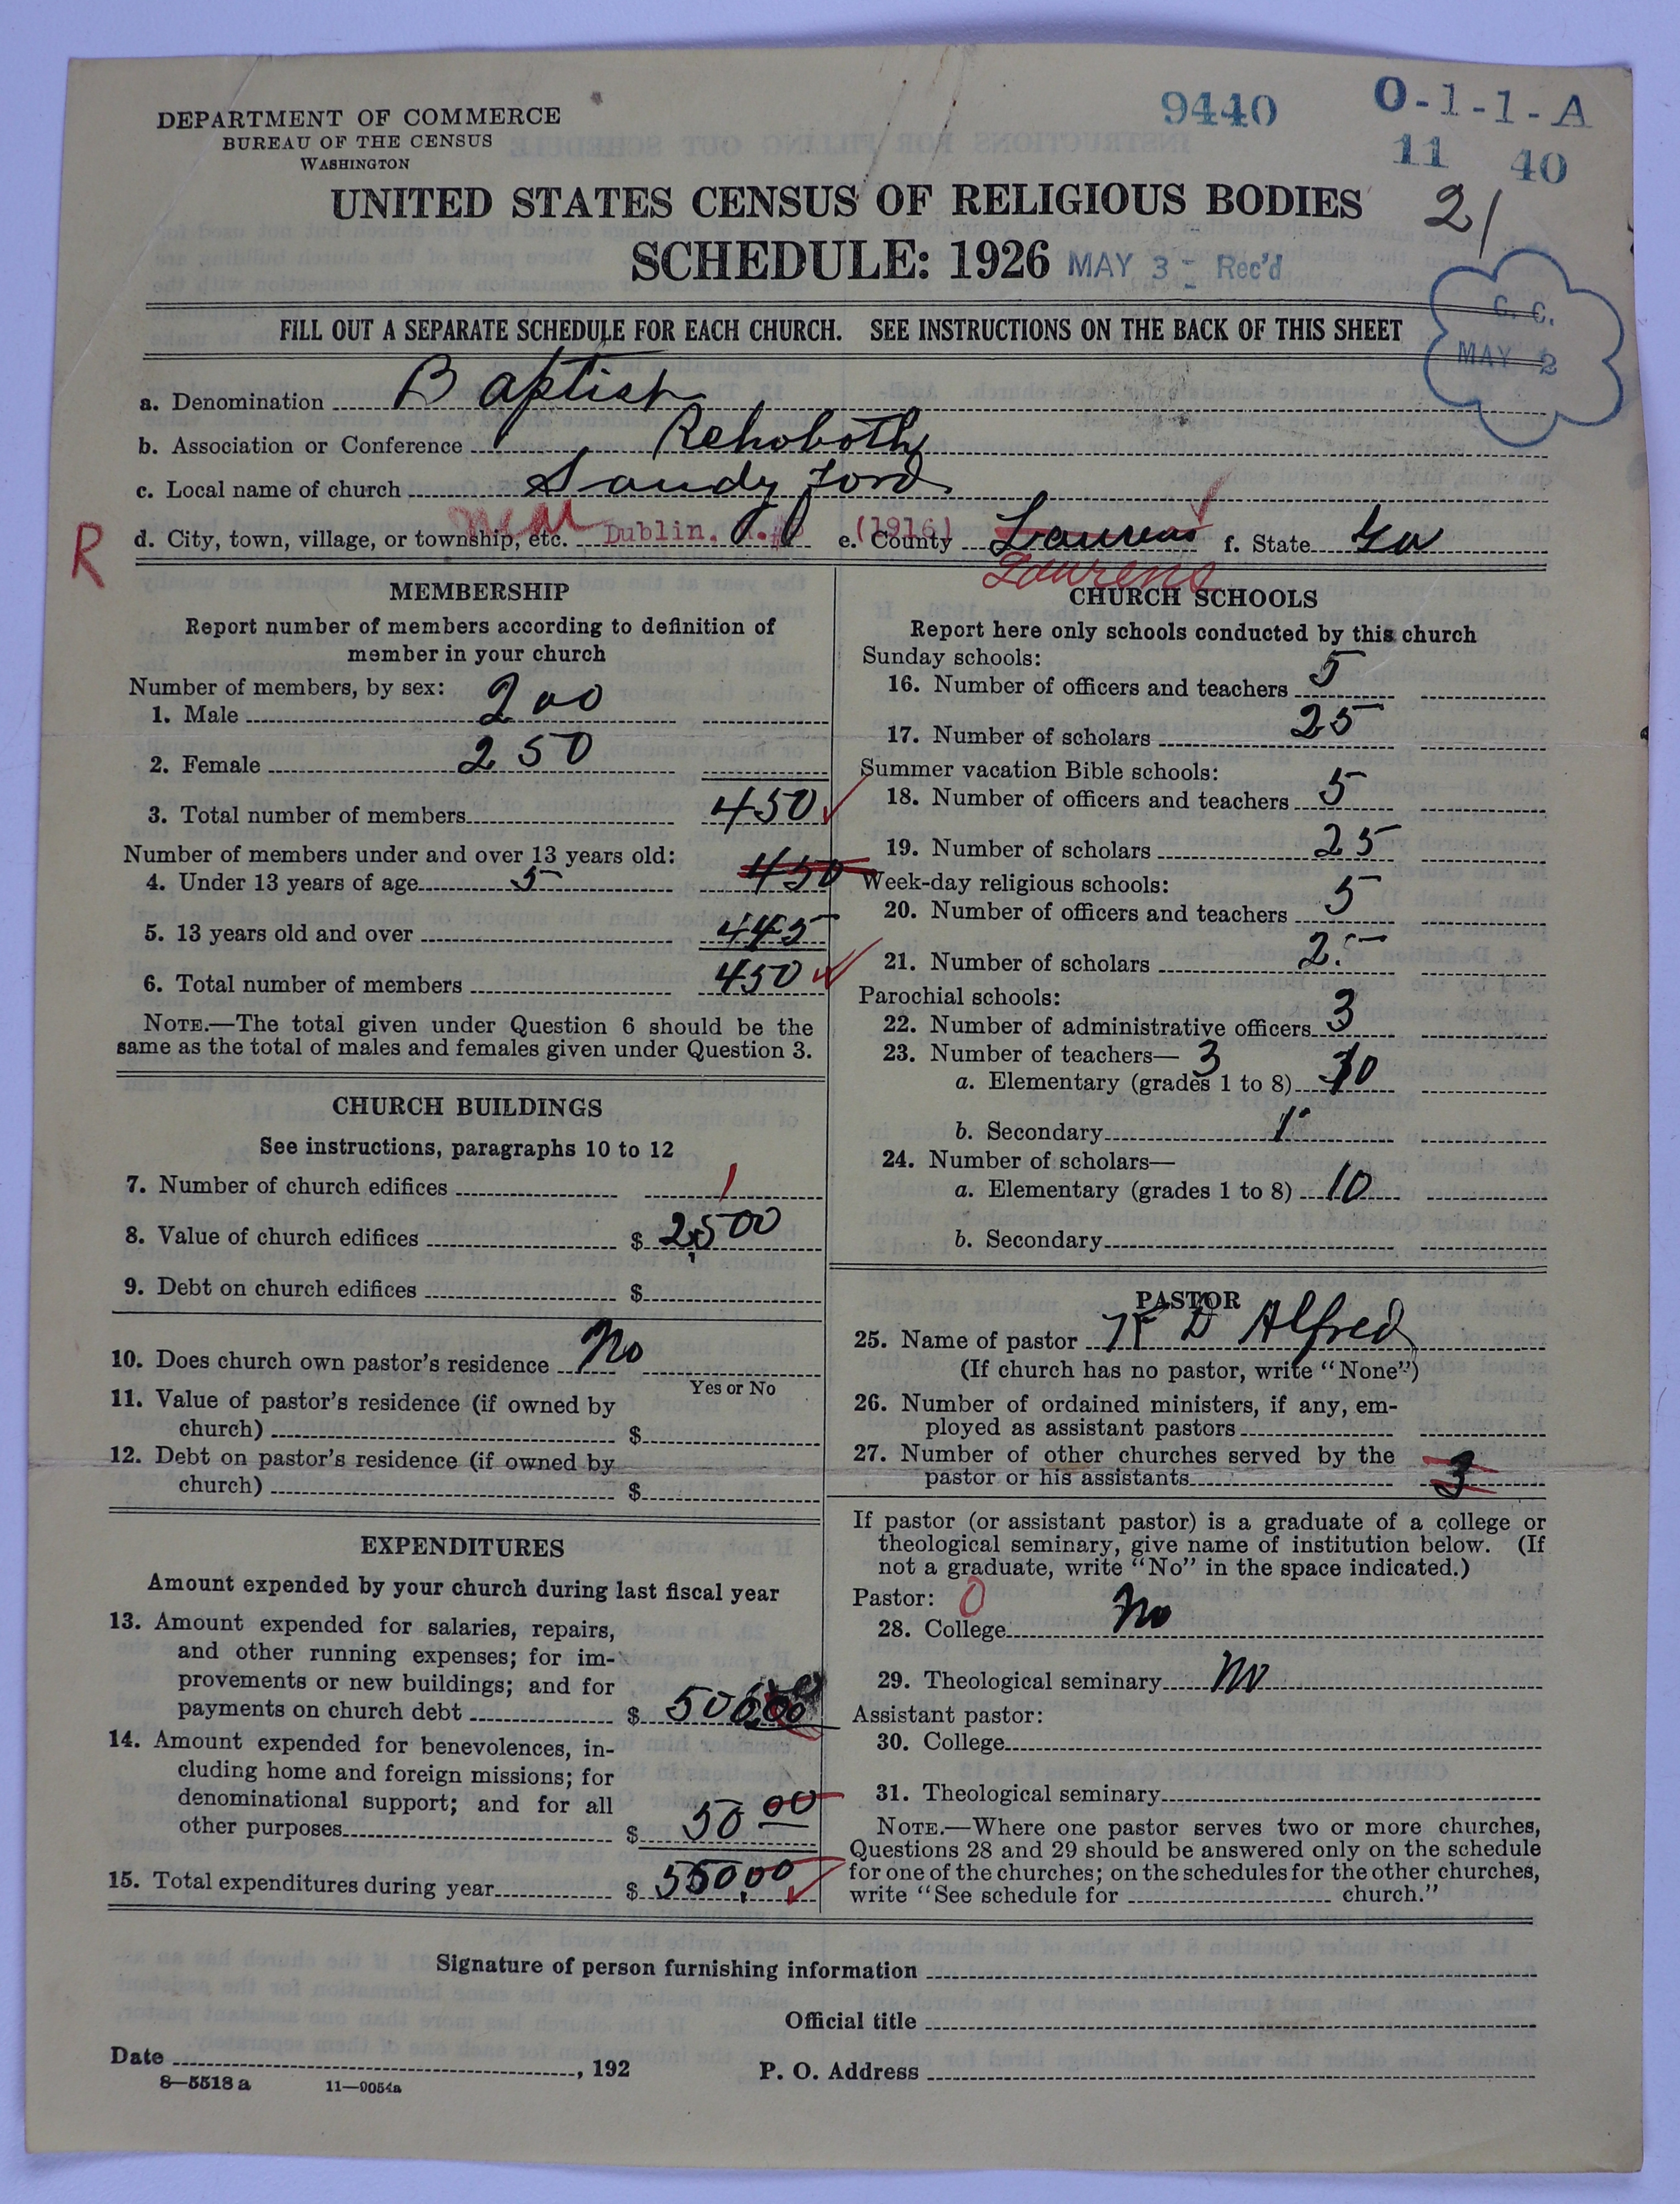 DEPARTMENT OF COMMERCE
BUREAU OF THE CENSUS
WASHINGTON
9440
O-1-1-A
11 40
21
UNITED STATES CENSUS OF RELIGIOUS BODIES
SCHEDULE: 1926 MAY 3 - Rec'd
G. C.
MAY 2
FILL OUT A SEPARATE SCHEDULE FOR EACH CHURCH. SEE INSTRUCTIONS ON THE BACK OF THIS SHEET
a. Denomination Baptist
b. Association or Conference Rehoboth
c. Local name of church Sandy Ford
R
d. City, town, village, or township, etc. near Dublin. (1916) e. County Laurens f. State Ga
Laurens
MEMBERSHIP
Report number of members according to definition of
member in your church
Number of members, by sex:
1. Male 200
2. Female 250
3. Total number of members 450
Number of members under and over 13 years old:
4. Under 13 years of age 5 450
5. 13 years old and over 445
6. Total number of members 450
NOTE.—The total given under Question 6 should be the
same as the total of males and females given under Question 3.
CHURCH BUILDINGS
See instructions, paragraphs 10 to 12
7. Number of church edifices 1
8. Value of church edifices $ 2,500
9. Debt on church edifices $
10. Does church own pastor's residence No
Yes or No
11. Value of pastor's residence (if owned by
church) $
12. Debt on pastor's residence (if owned by
church) $
EXPENDITURES
Amount expended by your church during last fiscal year
13. Amount expended for salaries, repairs,
and other running expenses; for im-
provements or new buildings; and for
payments on church debt $ 500
14. Amount expended for benevolences, in-
cluding home and foreign missions; for
denominational support; and for all
other purposes $ 50 00
15. Total expenditures during year $ 550.00
CHURCH SCHOOLS
Report here only schools conducted by this church
Sunday schools:
16. Number of officers and teachers 5
17. Number of scholars 25
Summer vacation Bible schools:
18. Number of officers and teachers 5
19. Number of scholars 25
Week-day religious schools:
20. Number of officers and teachers 5
21. Number of scholars 25
Parochial schools:
22. Number of administrative officers 3
23. Number of teachers— 3
a. Elementary (grades 1 to 8) 10
b. Secondary 1
24. Number of scholars—
a. Elementary (grades 1 to 8) 10
b. Secondary
PASTOR
25. Name of pastor D Alfred
(If church has no pastor, write "None")
26. Number of ordained ministers, if any, em-
ployed as assistant pastors
27. Number of other churches served by the
pastor or his assistants 3
If pastor (or assistant pastor) is a graduate of a college or
theological seminary, give name of institution below. (If
not a graduate, write "No" in the space indicated.)
Pastor: 0
28. College No
29. Theological seminary No
Assistant pastor:
30. College
31. Theological seminary
NOTE.—Where one pastor serves two or more churches,
Questions 28 and 29 should be answered only on the schedule
for one of the churches; on the schedules for the other churches,
write "See schedule for church."
Signature of person furnishing information
Official title
Date , 192 P. O. Address
8—5518 a 11—9054a